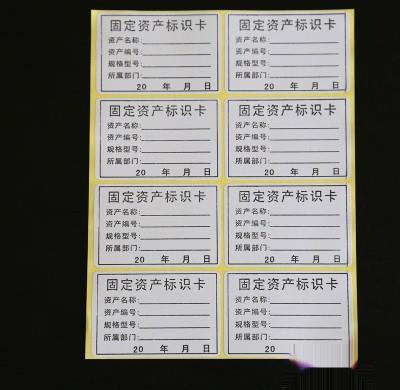 固定资产标识卡
资产名称:
资产编号:
规格型号:
所属部门:
20 年 月 日
固定资产标识卡
资产名称:
资产编号:
规格型号:
所属部门:
20 年 月 日
固定资产标识卡
资产名称:
资产编号:
规格型号:
所属部门:
20 年 月 日
固定资产标识卡
资产名称:
资产编号:
规格型号:
所属部门:
20 年 月 日
固定资产标识卡
资产名称:
资产编号:
规格型号:
所属部门:
20 年 月 日
固定资产标识卡
资产名称:
资产编号:
规格型号:
所属部门:
20 年 月 日
固定资产标识卡
资产名称:
资产编号:
规格型号:
所属部门:
20 年 月 日
固定资产标识卡
资产名称:
资产编号:
规格型号:
所属部门:
20